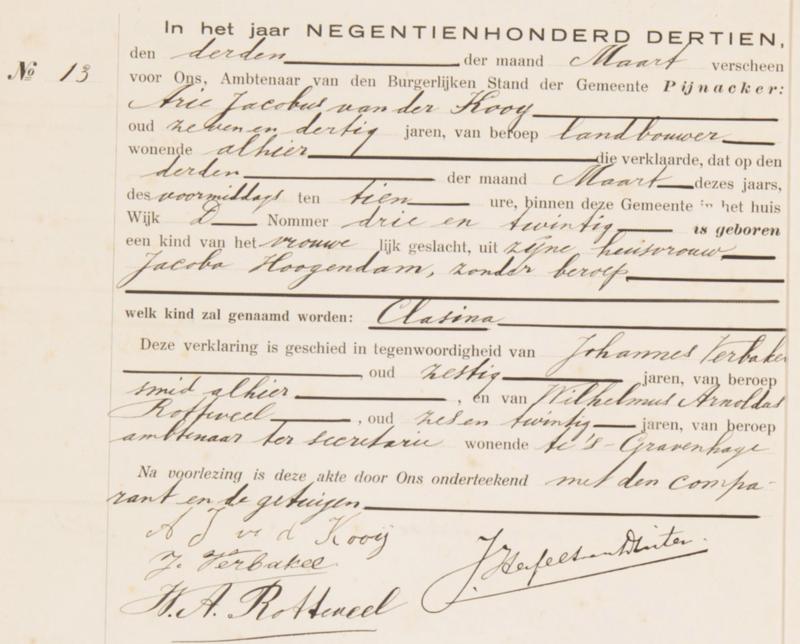 In het jaar NEGENTIENHONDERD DERTIEN,
den derden der maand Maart verscheen
No 13
voor Ons, Ambtenaar van den Burgerlijken Stand der Gemeente Pijnacker:
Arie Jacobus van der Kooy
oud zeven en dertig jaren, van beroep landbouwer
wonende alhier die verklaarde, dat op den
derden der maand Maart dezes jaars,
des voormiddags ten tien ure, binnen deze Gemeente in het huis
Wijk D Nommer drie en twintig is geboren
een kind van het vrouwe lijk geslacht, uit zijne huisvrouw
Jacoba Hoogendam, zonder beroep
welk kind zal genaamd worden: Clasina
Deze verklaring is geschied in tegenwoordigheid van Johannes Verbakel
, oud zestig jaren, van beroep
smid alhier , en van Wilhelmus Arnoldus
Rotteveel , oud zes en twintig jaren, van beroep
ambtenaar ter secretarie wonende te 's-Gravenhage
Na voorlezing is deze akte door Ons onderteekend met den compa-
rant en de getuigen
A J v d Kooij
J. Verbakel
W. A. Rotteveel